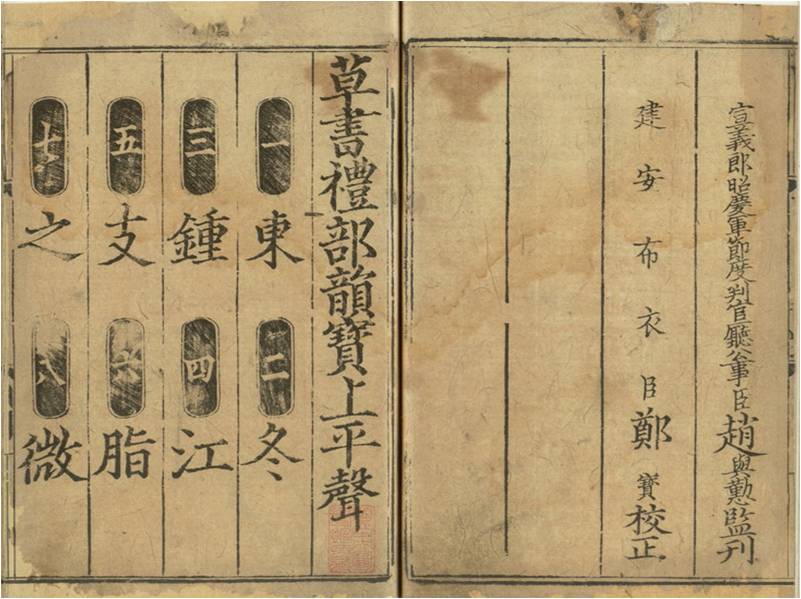 宣義郎昭慶軍節度判官廳公事臣趙與懃監刊
建安布衣臣鄭寶校正
草書禮部韻寶上平聲
一東 二冬
三鍾 四江
五支 六脂
七之 八微